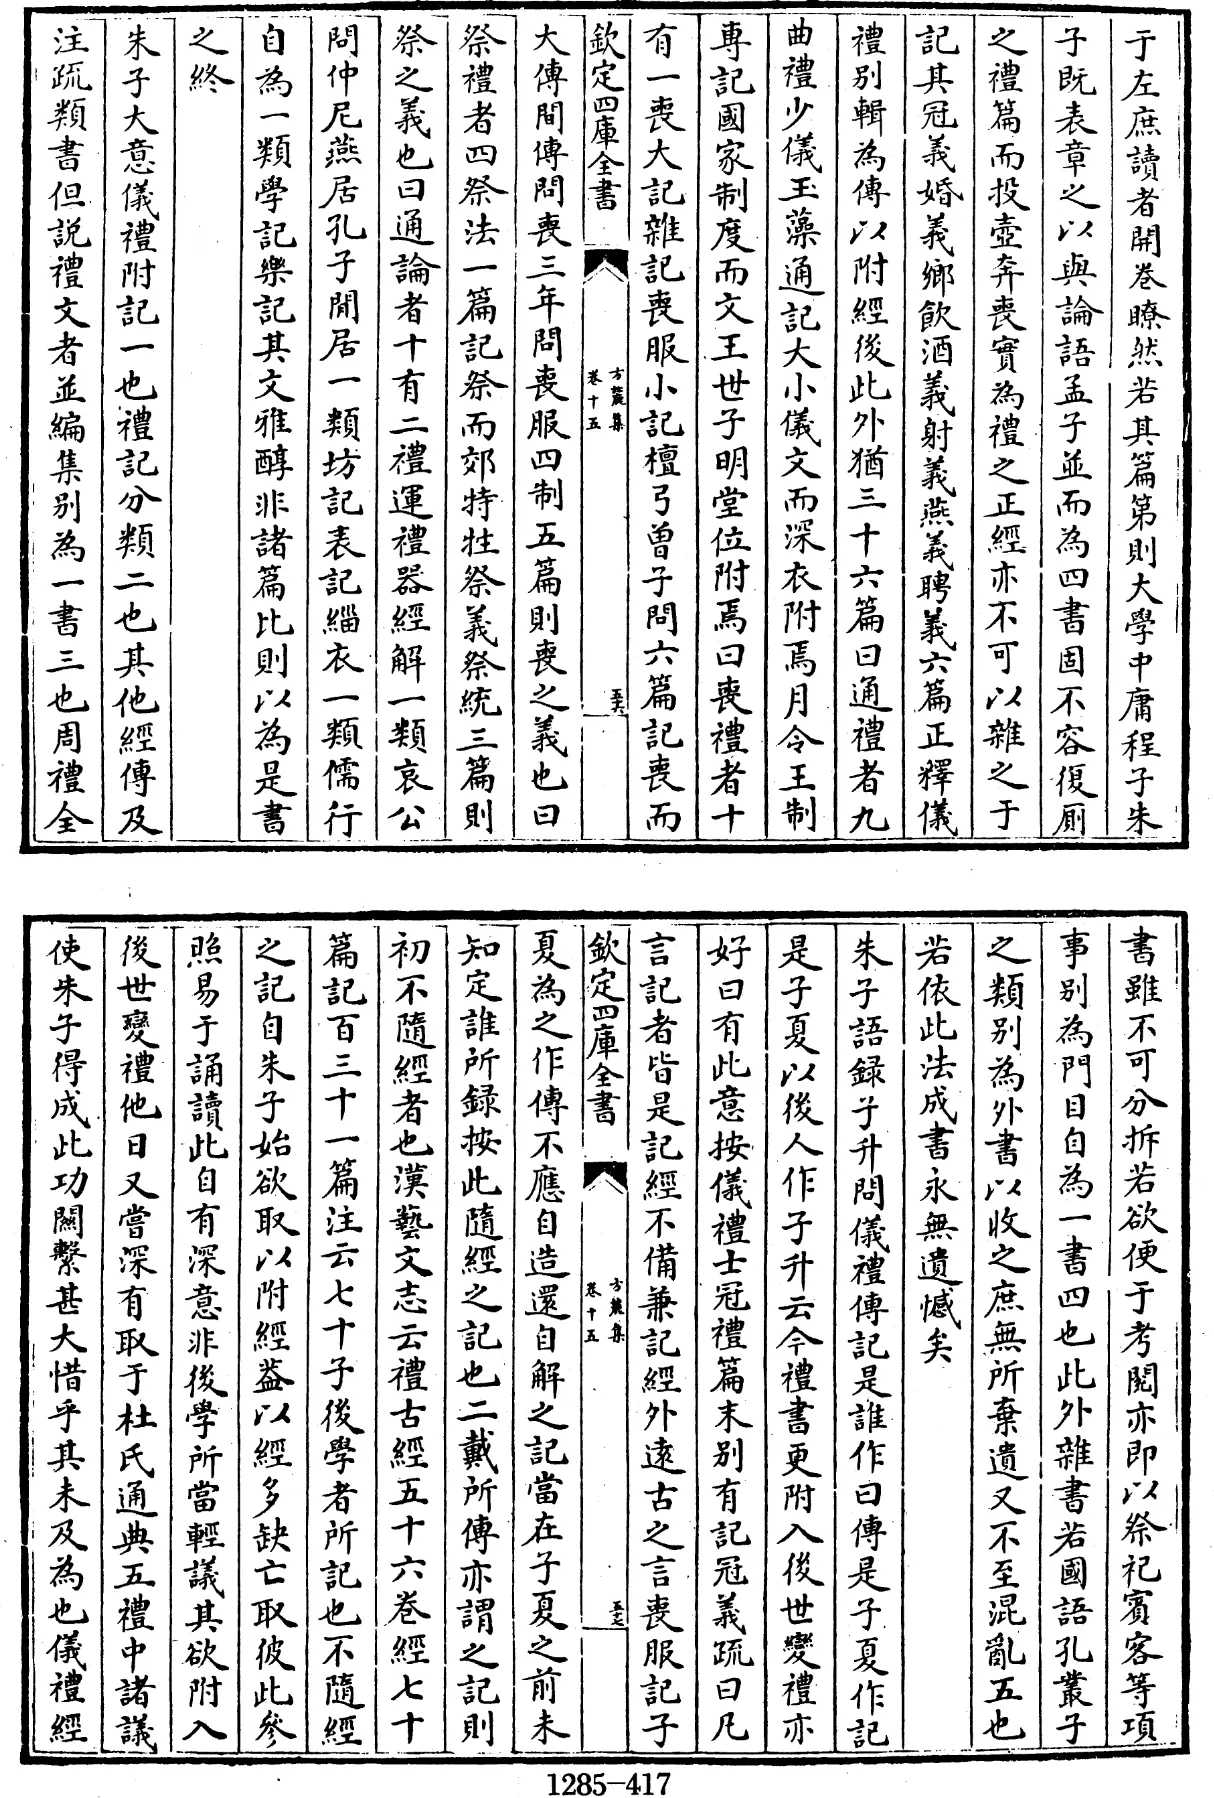 于左庶讀者開卷瞭然若其篇第則大學中庸程子朱
子既表章之以與論語孟子並而為四書固不容復厠
之禮篇而投壺奔喪實為禮之正經亦不可以雜之于
記其冠義婚義鄉飲酒義射義燕義聘義六篇正釋儀
禮別輯為傳以附經後此外猶三十六篇曰通禮者九
曲禮少儀玉藻通記大小儀文而深衣附焉月令王制
專記國家制度而文王世子明堂位附焉曰喪禮者十
有一喪大記雜記喪服小記檀弓曾子問六篇記喪而
欽定四庫全書
方麓集
卷十五
五六
大傳間傳問喪三年問喪服四制五篇則喪之義也曰
祭禮者四祭法一篇記祭而郊特牲祭義祭統三篇則
祭之義也曰通論者十有二禮運禮器經解一類哀公
問仲尼燕居孔子閒居一類坊記表記緇衣一類儒行
自為一類學記樂記其文雅醇非諸篇比則以為是書
之終
朱子大意儀禮附記一也禮記分類二也其他經傳及
注疏類書但說禮文者並編集別為一書三也周禮全
書雖不可分拆若欲便于考閱亦即以祭祀賓客等項
事別為門目自為一書四也此外雜書若國語孔叢子
之類別為外書以收之庶無所棄遺又不至混亂五也
若依此法成書永無遺憾矣
朱子語録子升問儀禮傳記是誰作曰傳是子夏作記
是子夏以後人作子升云今禮書更附入後世變禮亦
好曰有此意按儀禮士冠禮篇末別有記冠義疏曰凡
言記者皆是記經不備兼記經外遠古之言喪服記子
欽定四庫全書
方麓集
卷十五
五七
夏為之作傳不應自造還自解之記當在子夏之前未
知定誰所録按此隨經之記也二戴所傳亦謂之記則
初不隨經者也漢藝文志云禮古經五十六卷經七十
篇記百三十一篇注云七十子後學者所記也不隨經
之記自朱子始欲取以附經葢以經多缺亡取彼此參
照易于誦讀此自有深意非後學所當輕議其欲附入
後世變禮他日又嘗深有取于杜氏通典五禮中諸議
使朱子得成此功關繫甚大惜乎其未及為也儀禮經
1285-417